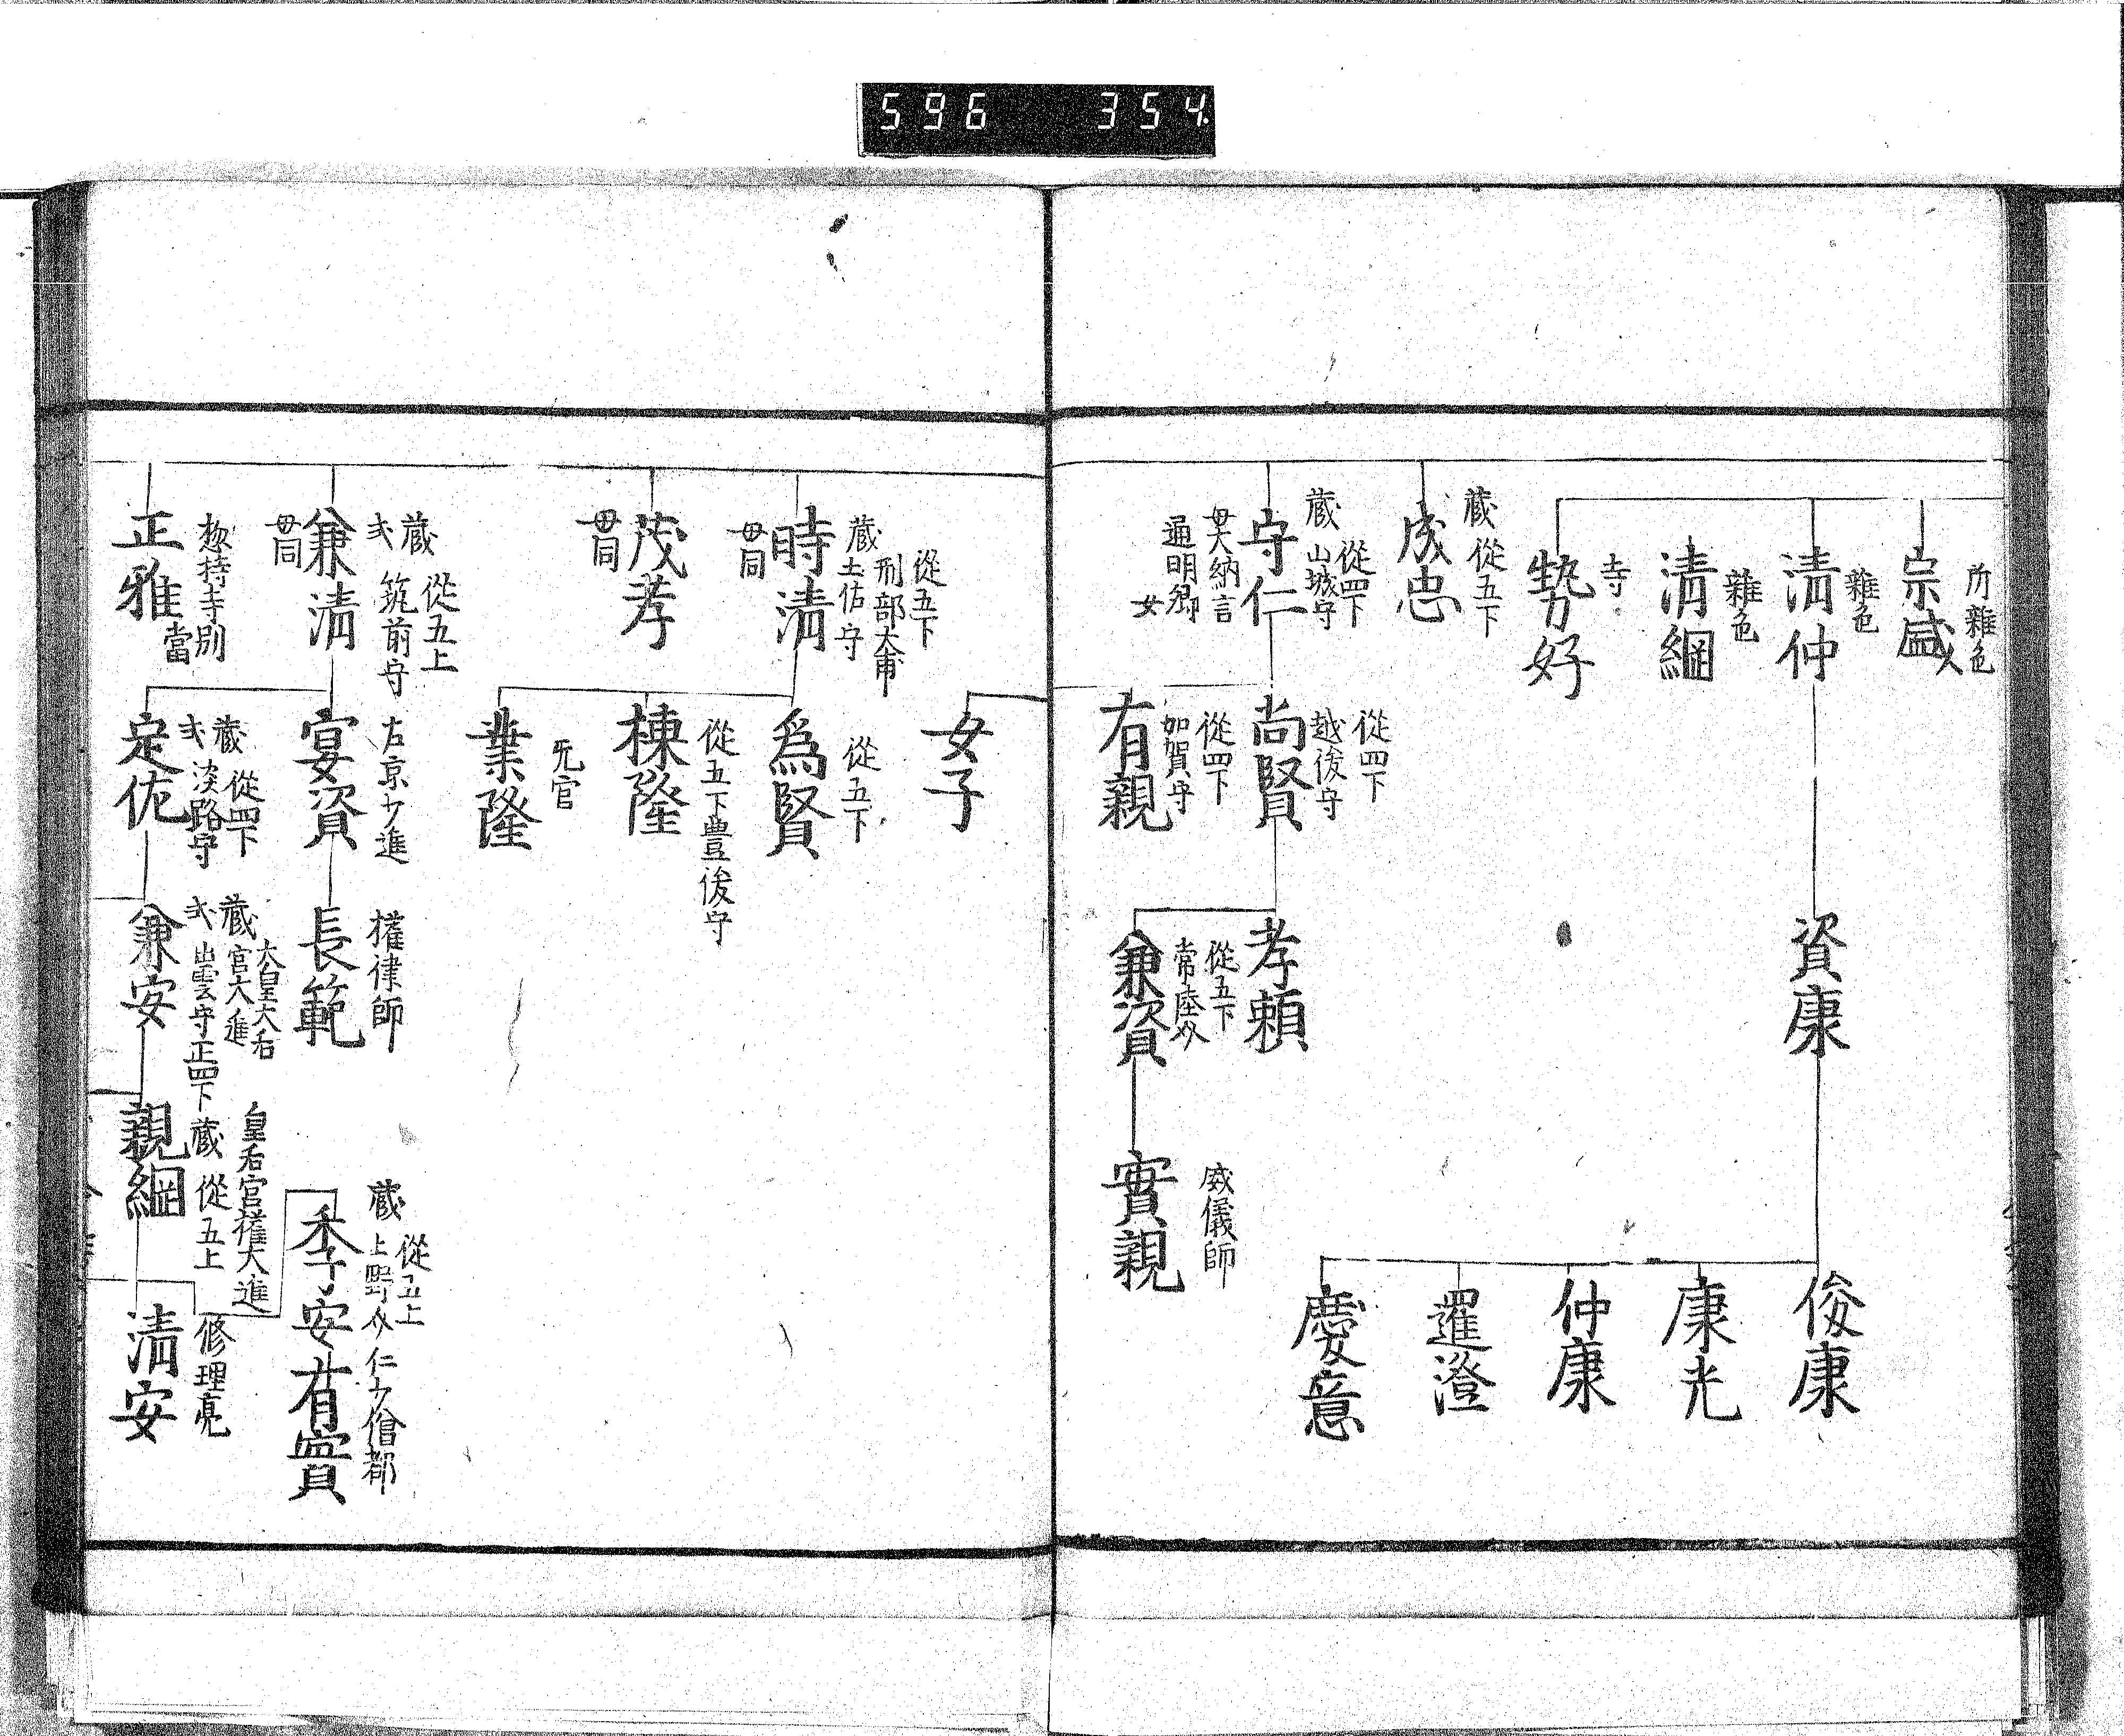 596 354.
所雜色
宗盛
雜色
清仲
資康
俊康
康光
仲康
暹澄
慶意
雜色
清綱
寺
勢好
蔵 從五下
成忠
蔵 從四下
山城守
守仁
母大納言
通明卿
女
從四下
越後守
尚賢
孝頼
從四下
加賀守
有親
從五下
常陸介
兼資
威儀師
實親
女子
從五下
刑部大甫
蔵 土佐守
時清
母同
從五下
為賢
從五下豊後守
棟隆
无官
業隆
茂孝
母同
蔵 從五上
筑前守
兼清
母同
右京少進
宴資
權律師
長範
蔵 從五上
上野介
季安
仁少僧都
有實
惣持寺別
當
正雅
蔵 從四下
淡路守
定佐
蔵 大皇大后
宮大進
出雲守正四下
兼安
皇后宮權大進
蔵 從五上
親綱
修理亮
清安